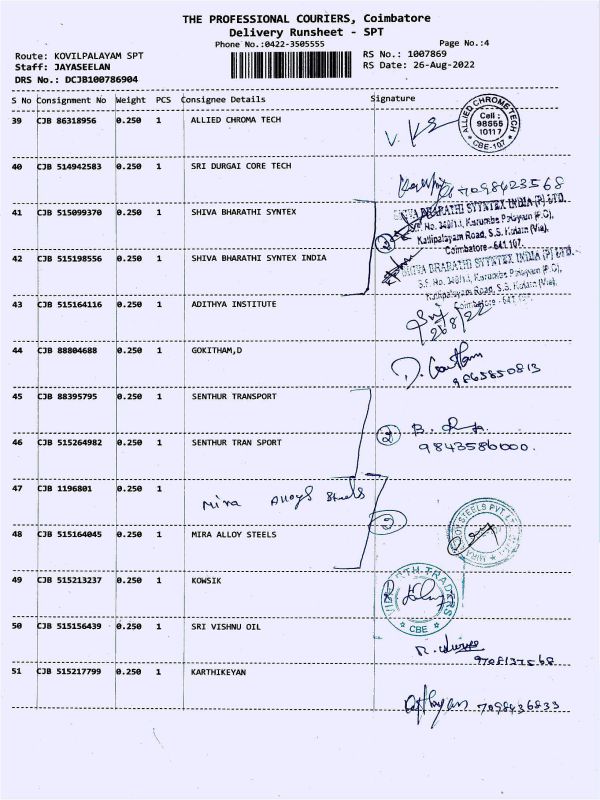 THE PROFESSIONAL COURIERS, Coimbatore
Delivery Runsheet - SPT
Phone No.:0422-3505555
Page No.:4
Route: KOVILPALAYAM SPT
RS No.: 1007869
Staff: JAYASEELAN
RS Date: 26-Aug-2022
DRS No.: DCJB100786904
S No Consignment No Weight PCS Consignee Details Signature
39 CJB 86318956 0.250 1 ALLIED CHROMA TECH
ALLIED CHROME TECH
Cell :
98555
10117
CBE-107
40 CJB 514942583 0.250 1 SRI DURGAI CORE TECH
7098623568
41 CJB 515099370 0.250 1 SHIVA BHARATHI SYNTEX
2
SHIVA BHARATHI SYNTEX INDIA (P) LTD.
Kalipalayam Road, S.S. Kulam (Via),
Coimbatore - 641 107.
42 CJB 515198556 0.250 1 SHIVA BHARATHI SYNTEX INDIA
SHIVA BHARATHI SYNTEX INDIA (P) LTD.
Kalipalayam Road, S.S. Kulam (Via),
Coimbatore - 641 107.
43 CJB 515164116 0.250 1 ADITHYA INSTITUTE
26/8/22
44 CJB 88804688 0.250 1 GOKITHAM,D
9865850813
45 CJB 88395795 0.250 1 SENTHUR TRANSPORT
2
46 CJB 515264982 0.250 1 SENTHUR TRAN SPORT
9843586000.
47 CJB 1196801 0.250 1 Mira Alloys Steels
2
48 CJB 515164045 0.250 1 MIRA ALLOY STEELS
49 CJB 515213237 0.250 1 KOWSIK
TRADERS
CBE
50 CJB 515156439 0.250 1 SRI VISHNU OIL
9708137568
51 CJB 515217799 0.250 1 KARTHIKEYAN
7098436833